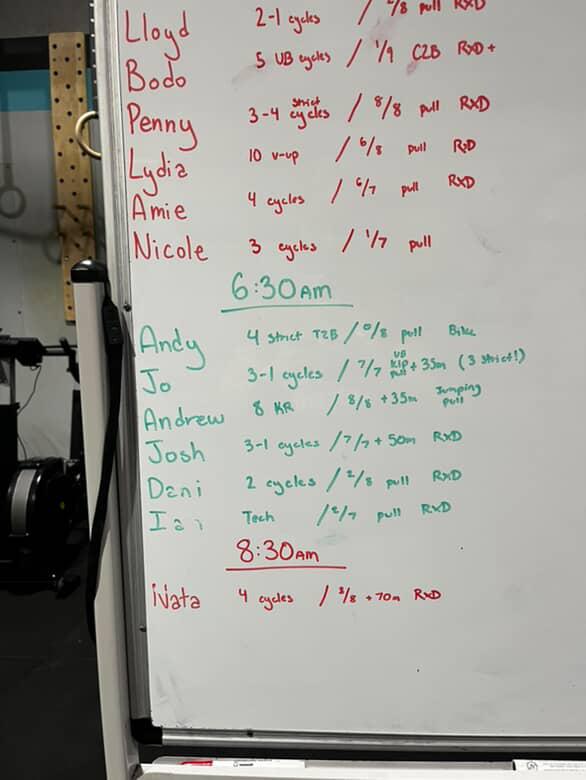 Lloyd 2-1 cycles / /8 pull RXD
Bodo 5 UB cycles / 1/9 C2B RXD+
Penny 3-4 strict cycles / 8/8 pull RXD
Lydia 10 v-up / 6/8 pull RXD
Amie 4 cycles / 6/7 pull RXD
Nicole 3 cycles / 1/7 pull
6:30AM
Andy 4 strict T2B / 0/8 pull Bike
Jo 3-1 cycles / 7/7 UB kip pull + 35m (3 strict!)
Andrew 8 KR / 8/8 + 35m Jumping pull
Josh 3-1 cycles / 7/7 + 50m RXD
Dani 2 cycles / 2/8 pull RXD
Tech / 2/7 pull RXD
8:30AM
Nata 4 cycles / 3/8 + 70m RXD